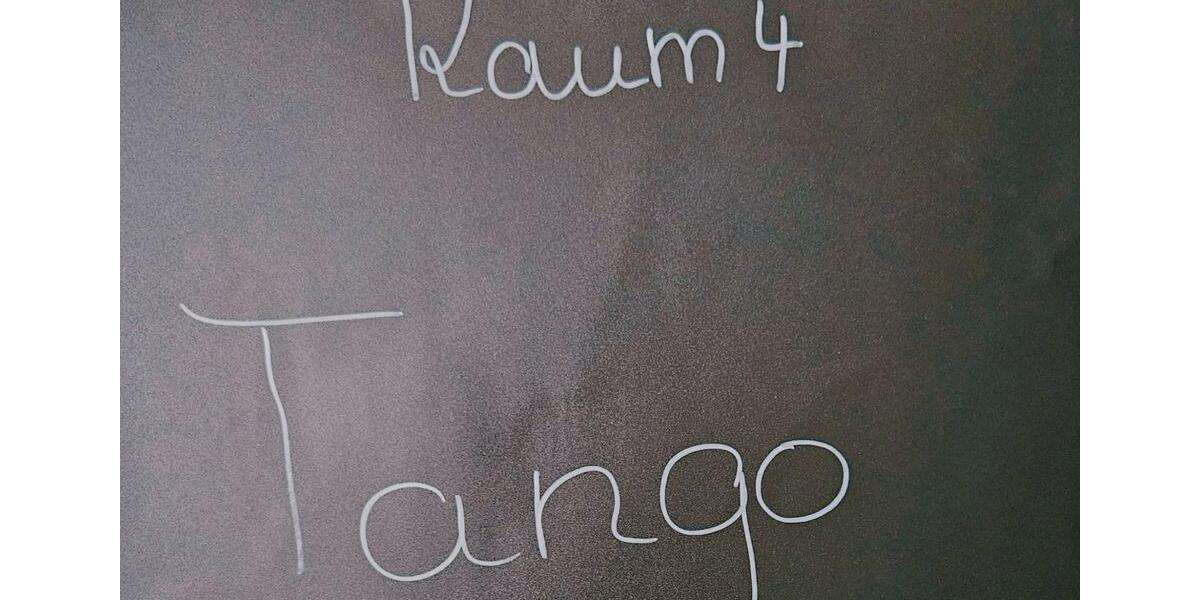 Raum 4
Tango